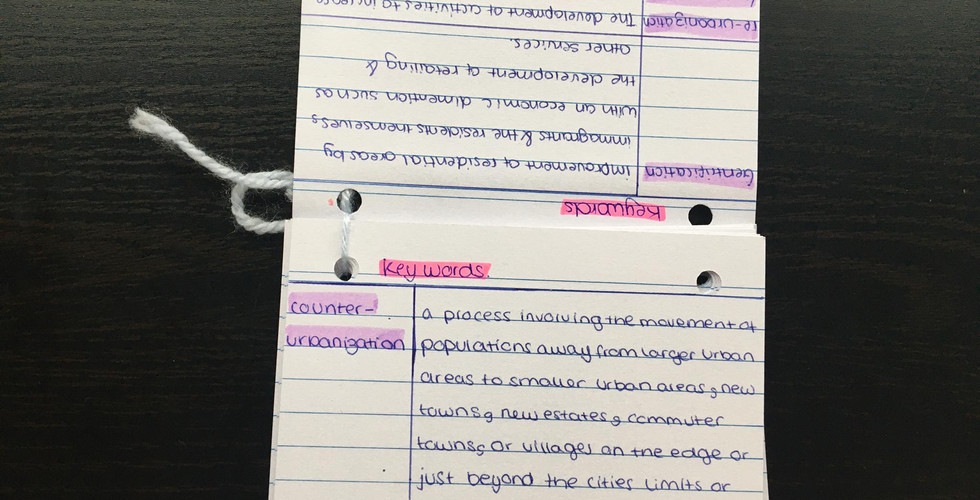 Key words.
counter-
urbanization
a process involving the movement of
populations away from larger urban
areas to smaller urban areas, new
towns, new estates, commuter
towns, or villages on the edge or
just beyond the cities limits or
Keywords
Gentrification
improvement of residential areas by
immagrants & the residents themselves
with an economic dimention such as
the development of retailing &
other services.
re-urbanization
The development of activities to increase